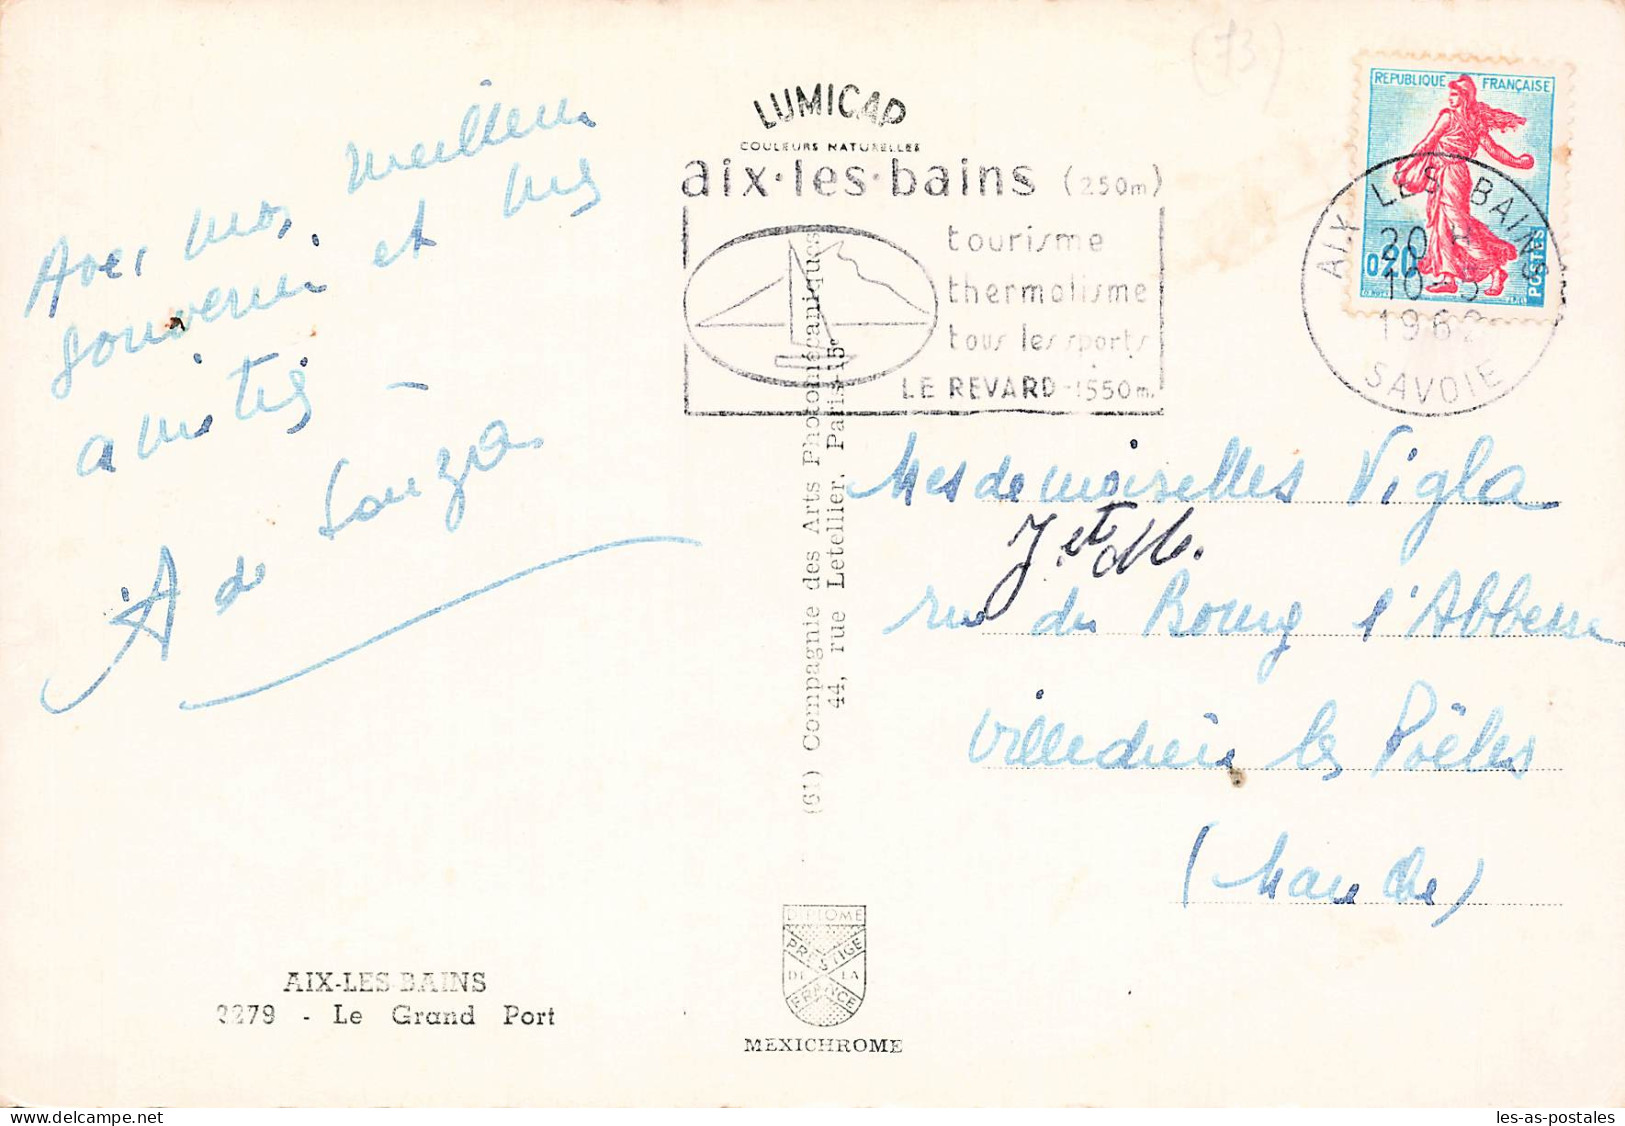 (73)
Avec mes meilleurs
souvenirs et mes
amitiés -
A de Souza
LUMICAP
COULEURS NATURELLES
aix·les·bains (250m)
tourisme
thermalisme
tous les sports
LE REVARD - 1550m.
REPUBLIQUE FRANÇAISE
0,20
POSTES
AIX LES BAINS
20 H
1962
SAVOIE
(61) Compagnie des Arts Photomécaniques
44, rue Letellier, Paris-15e
Mesdemoiselles Vigla
J. et M.
rue du Bourg l'Abbesse
Villedieu les Poëles
(Manche)
AIX-LES-BAINS
3279 - Le Grand Port
DIPLOME
PRESTIGE
DE LA
FRANCE
MEXICHROME
delcampe.net
les-as-postales